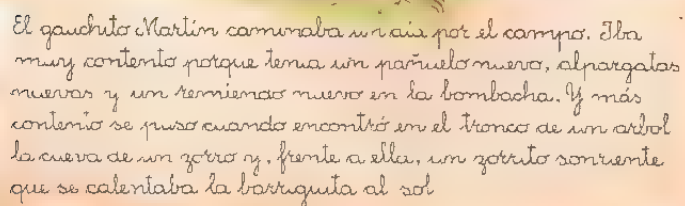 El gauchito Martín caminaba un día por el campo. Iba
muy contento porque tenía un pañuelo nuevo, alpargatas
nuevas y un remiendo nuevo en la bombacha. Y más
contento se puso cuando encontró en el tronco de un arbol
la cueva de un zorro y, frente a ella, un zorrito sonriente
que se calentaba la barriguita al sol